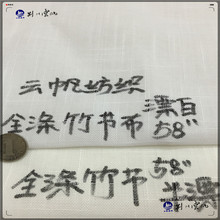 云帆纺织
全涤竹节布 漂白 58"
全涤竹节 58" 半漂